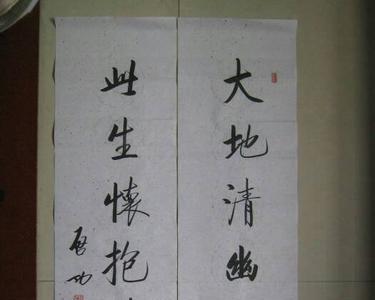 大地清幽
此生懷抱
啓功